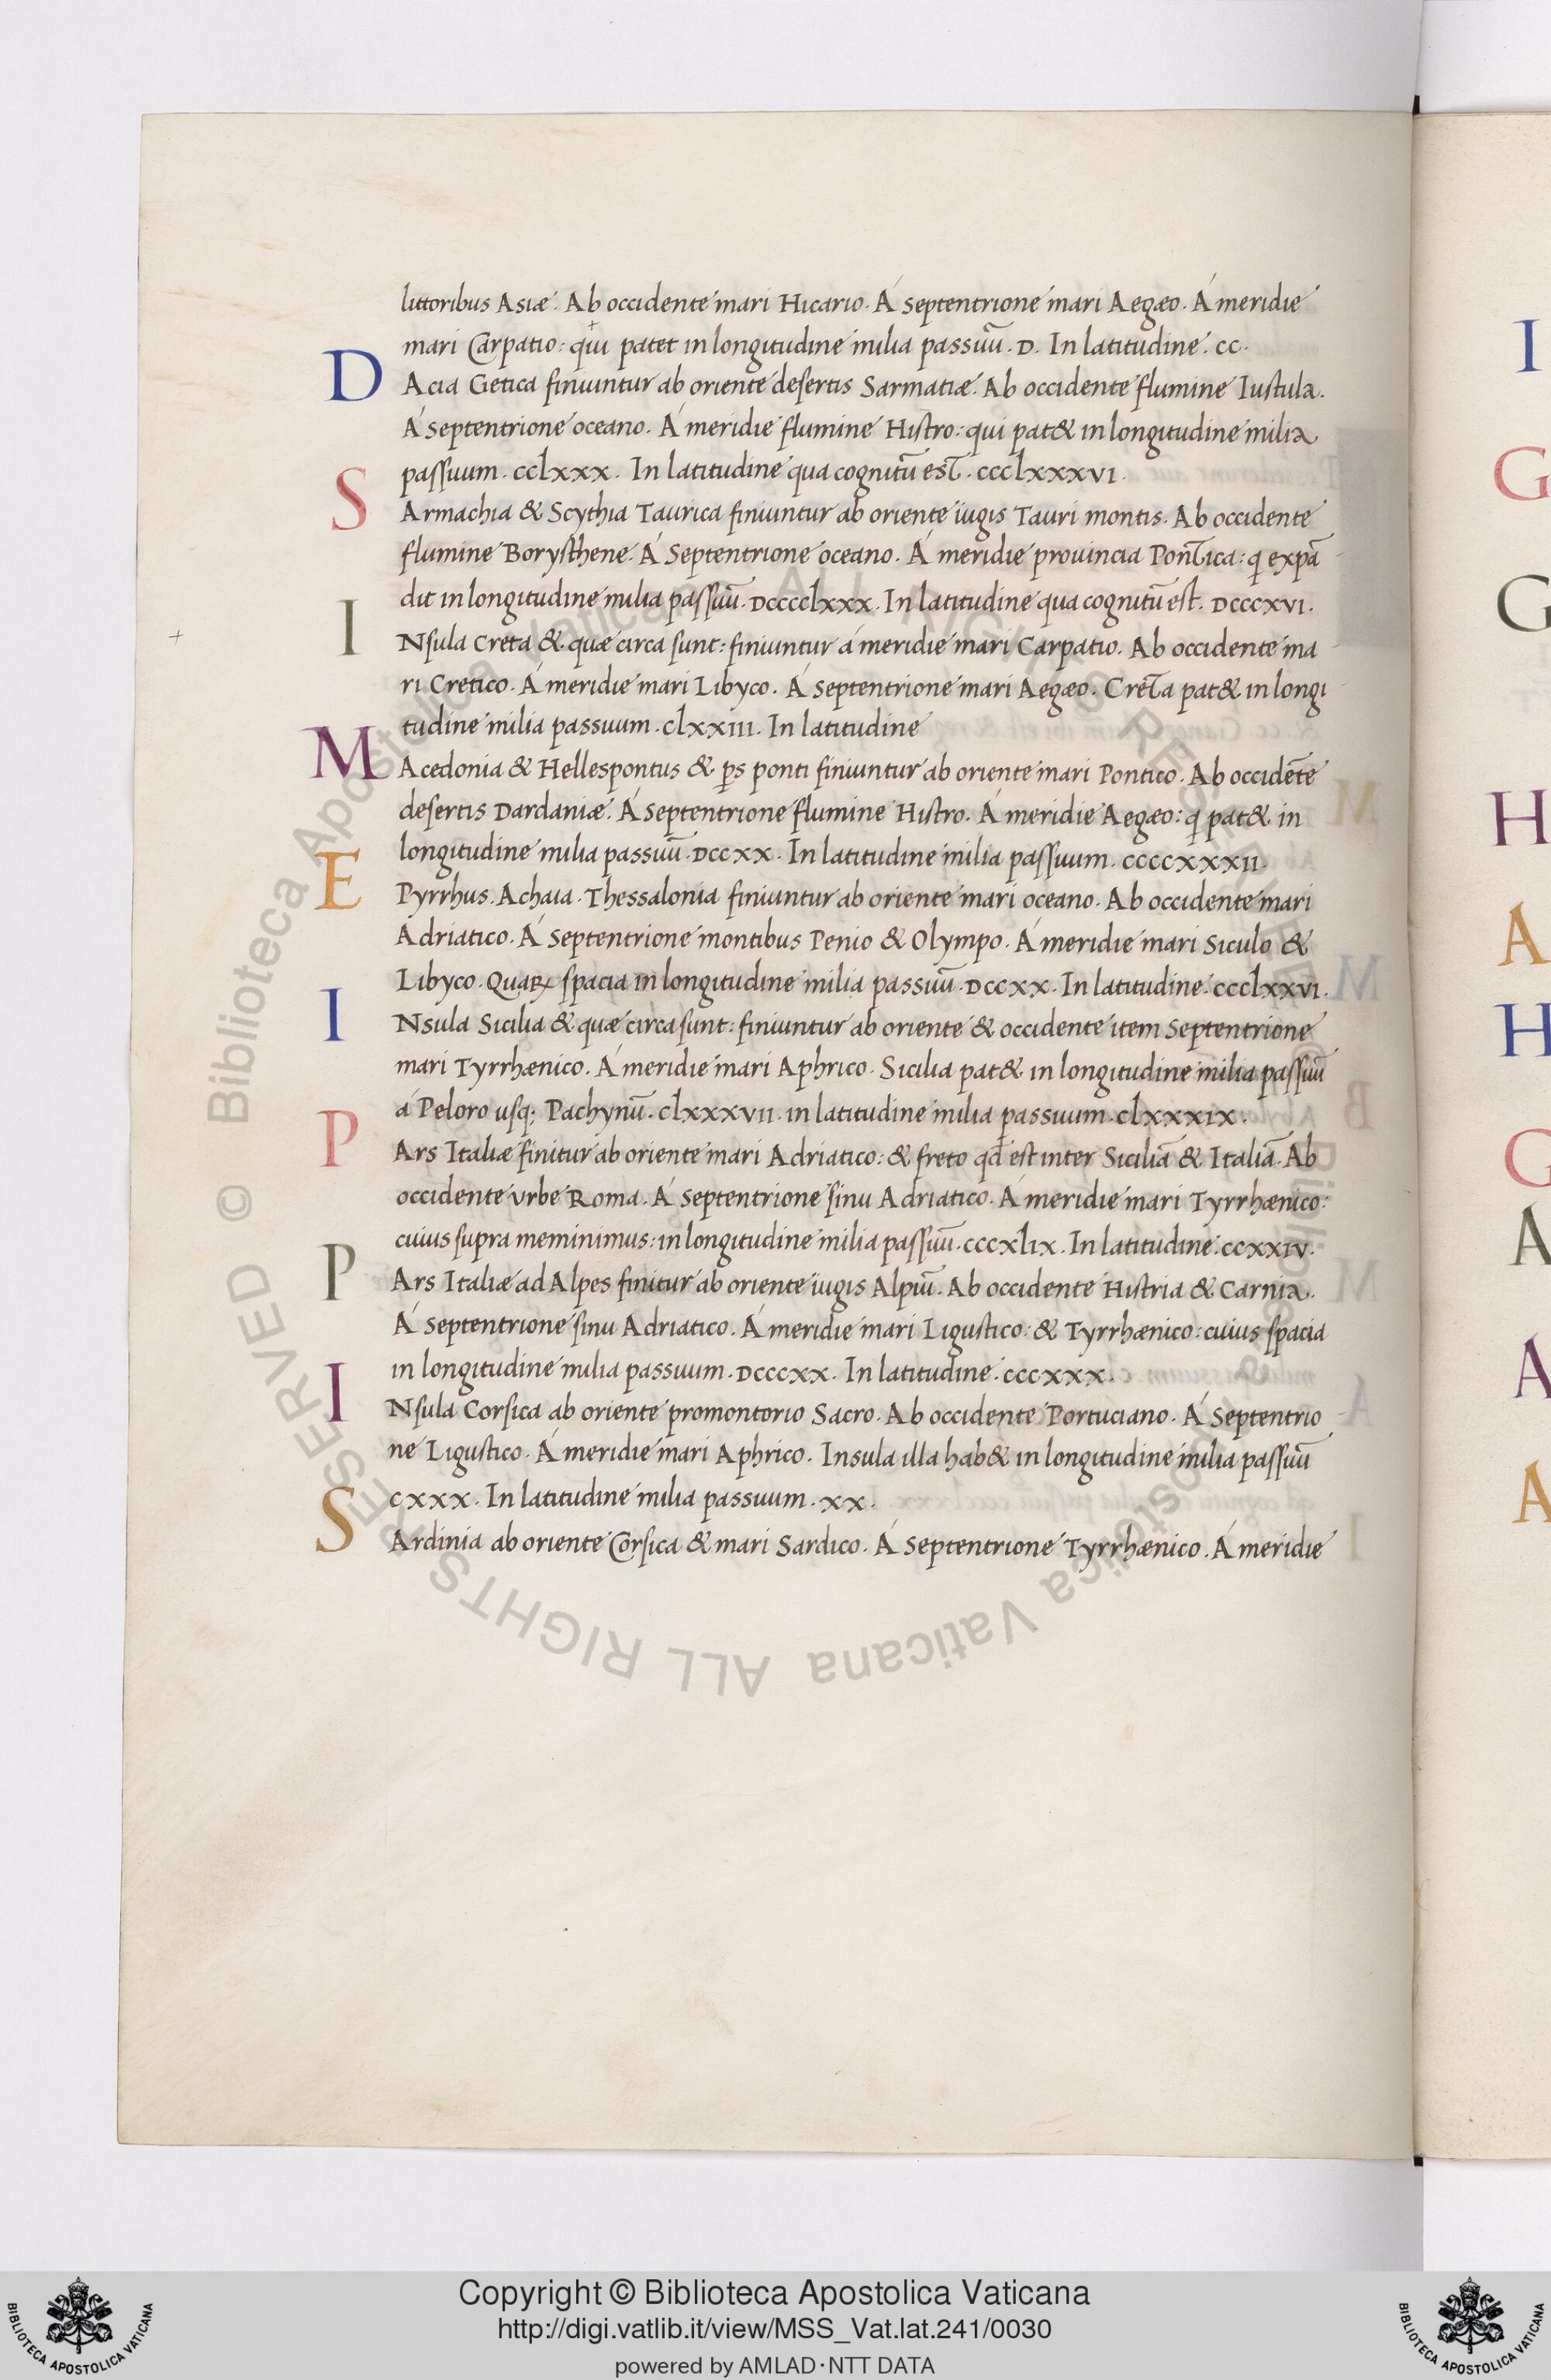 littoribus Asiæ. Ab occidente mari Hicario. Á Septentrione mari Aegæo. Á meridie
mari Carpatio: qui patet in longitudine milia passuū. D. In latitudine. cc.
DAcia Getica finiuntur ab oriente desertis Sarmatiæ. Ab occidente flumine Iustula.
Á Septentrione oceano. Á meridie flumine Histro: qui pat& in longitudine milia
passuum. cclxxx. In latitudine qua cognitū est. ccclxxxvi.
SArmachia & Scythia Taurica finiuntur ab oriente iugis Tauri montis. Ab occidente
flumine Borysthene. Á Septentrione oceano. Á meridie prouincia Pontica: q expā
dit in longitudine milia passuū. Dcccclxxx. In latitudine qua cognitū est. Dcccxvi.
INsula Creta & quæ circa sunt: finiuntur á meridie mari Carpatio. Ab occidente ma
ri Cretico. Á meridie mari Libyco. Á Septentrione mari Aegæo. Creta pat& in longi
tudine milia passuum. clxxiii. In latitudine
MAcedonia & Hellespontus & ps ponti finiuntur ab oriente mari Pontico. Ab occidēte
desertis Dardaniæ. Á Septentrione flumine Histro. Á meridie Aegæo: q pat& in
longitudine milia passuū. Dccxx. In latitudine milia passuum. ccccxxxii.
EPyrrhus. Achaia. Thessalonia finiuntur ab oriente mari oceano. Ab occidente mari
Adriatico. Á Septentrione montibus Penio & Olympo. Á meridie mari Siculo &
Libyco. Quaꝝ spacia in longitudine milia passuū. Dccxx. In latitudine. ccclxxvi.
INsula Sicilia & quæ circa sunt: finiuntur ab oriente & occidente item Septentrione
mari Tyrrhænico. Á meridie mari Aphrico. Sicilia pat& in longitudine milia passuū
á Peloro usq; Pachynū. clxxxvii. in latitudine milia passuum. clxxxix.
PArs Italiæ finitur ab oriente mari Adriatico: & freto qđ est inter Siciliā & Italiā. Ab
occidente vrbe Roma. Á Septentrione sinu Adriatico. Á meridie mari Tyrrhænico:
cuius supra meminimus: in longitudine milia passuū. cccxlix. In latitudine. ccxxiv.
PArs Italiæ ad Alpes finitur ab oriente iugis Alpiū. Ab occidente Histria & Carnia.
Á Septentrione sinu Adriatico. Á meridie mari Ligustico: & Tyrrhænico: cuius spacia
in longitudine milia passuum. Dcccxx. In latitudine. cccxxx.
INsula Corsica ab oriente promontorio Sacro. Ab occidente Portuciano. Á Septentrio
ne Ligustico. Á meridie mari Aphrico. Insula illa hab& in longitudine milia passuū
cxxx. In latitudine milia passuum. xx.
SArdinia ab oriente Corsica & mari Sardico. Á Septentrione Tyrrhænico. Á meridie
I
G
G
H
A
H
G
A
A
A
© Biblioteca Apostolica Vaticana ALL RIGHTS RESERVED
© Biblioteca Apostolica Vaticana ALL RIGHTS RESERVED
Copyright © Biblioteca Apostolica Vaticana
http://digi.vatlib.it/view/MSS_Vat.lat.241/0030
powered by AMLAD·NTT DATA
BIBLIOTECA APOSTOLICA VATICANA
BIBLIOTECA APOSTOLICA VATICANA